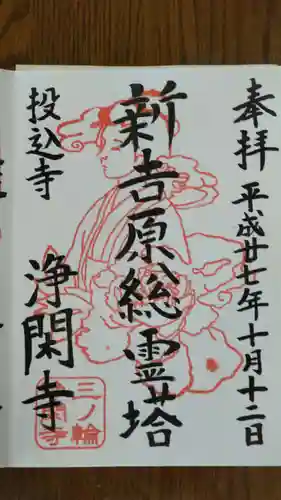 奉拝 平成廿七年十月十二日
新吉原総霊塔
投込寺
浄閑寺
三ノ輪
浄閑寺